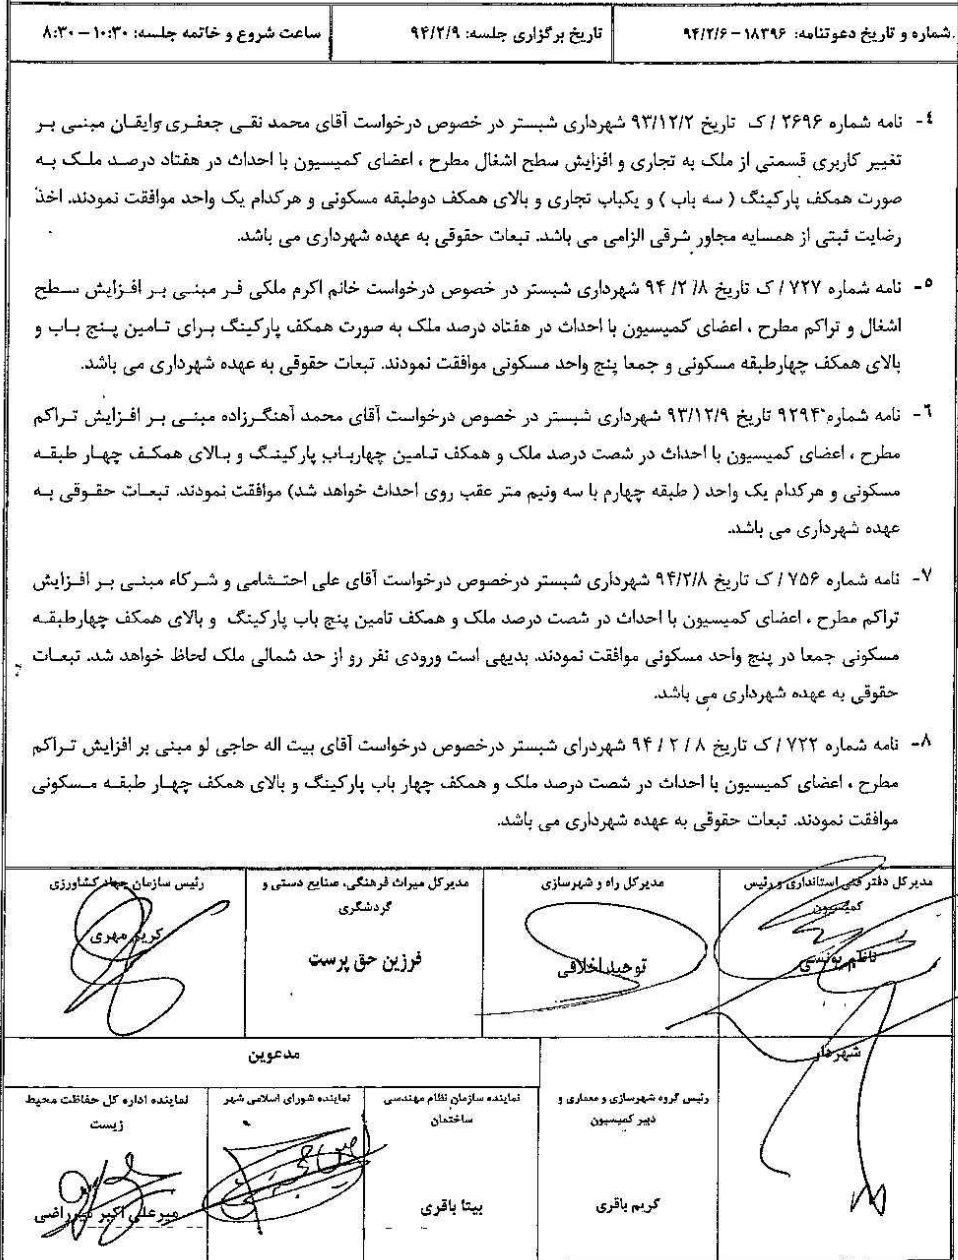 شماره و تاریخ دعوتنامه: ۱۸۳۹۶ – ۹۴/۲/۶
تاریخ برگزاری جلسه: ۹۴/۲/۹
ساعت شروع و خاتمه جلسه: ۱۰:۳۰ – ۸:۳۰
۴- نامه شماره ۲۶۹۶ / ک تاریخ ۹۳/۱۲/۲ شهرداری شبستر در خصوص درخواست آقای محمد نقی جعفری وایقان مبنی بر
تغییر کاربری قسمتی از ملک به تجاری و افزایش سطح اشغال مطرح ، اعضای کمیسیون با احداث در هفتاد درصد ملک به
صورت همکف پارکینگ ( سه باب ) و یکباب تجاری و بالای همکف دوطبقه مسکونی و هرکدام یک واحد موافقت نمودند. اخذ
رضایت ثبتی از همسایه مجاور شرقی الزامی می باشد. تبعات حقوقی به عهده شهرداری می باشد.
۵- نامه شماره ۷۲۷ / ک تاریخ ۸/ ۲/ ۹۴ شهرداری شبستر در خصوص درخواست خانم اکرم ملکی فر مبنی بر افزایش سطح
اشغال و تراکم مطرح ، اعضای کمیسیون با احداث در هفتاد درصد ملک به صورت همکف پارکینگ برای تامین پنج باب و
بالای همکف چهارطبقه مسکونی و جمعا پنج واحد مسکونی موافقت نمودند. تبعات حقوقی به عهده شهرداری می باشد.
۶- نامه شماره ۹۲۹۴ تاریخ ۹۳/۱۲/۹ شهرداری شبستر در خصوص درخواست آقای محمد آهنگرزاده مبنی بر افزایش تراکم
مطرح ، اعضای کمیسیون با احداث در شصت درصد ملک و همکف تامین چهارباب پارکینگ و بالای همکف چهار طبقه
مسکونی و هرکدام یک واحد ( طبقه چهارم با سه ونیم متر عقب روی احداث خواهد شد) موافقت نمودند. تبعات حقوقی به
عهده شهرداری می باشد.
۷- نامه شماره ۷۵۶ / ک تاریخ ۹۴/۲/۸ شهرداری شبستر درخصوص درخواست آقای علی احتشامی و شرکاء مبنی بر افزایش
تراکم مطرح ، اعضای کمیسیون با احداث در شصت درصد ملک و همکف تامین پنج باب پارکینگ و بالای همکف چهارطبقه
مسکونی جمعا در پنج واحد مسکونی موافقت نمودند. بدیهی است ورودی نفر رو از حد شمالی ملک لحاظ خواهد شد. تبعات
حقوقی به عهده شهرداری می باشد.
۸- نامه شماره ۷۲۲ / ک تاریخ ۸ / ۲ / ۹۴ شهردرای شبستر درخصوص درخواست آقای بیت اله حاجی لو مبنی بر افزایش تراکم
مطرح ، اعضای کمیسیون با احداث در شصت درصد ملک و همکف چهار باب پارکینگ و بالای همکف چهار طبقه مسکونی
موافقت نمودند. تبعات حقوقی به عهده شهرداری می باشد.
مدیرکل دفتر فنی استانداری و رئیس
کمیسیون
ناظم یونسی
مدیرکل راه و شهرسازی
توحید اخلاقی
مدیرکل میراث فرهنگی، صنایع دستی و
گردشگری
فرزین حق پرست
رئیس سازمان جهاد کشاورزی
کریم مهری
شهردار
مدعوین
رئیس گروه شهرسازی و معماری و
دبیر کمیسیون
کریم باقری
نماینده سازمان نظام مهندسی
ساختمان
بیتا باقری
نماینده شورای اسلامی شهر
نماینده اداره کل حفاظت محیط
زیست
میرعلی اکبر میرراضی